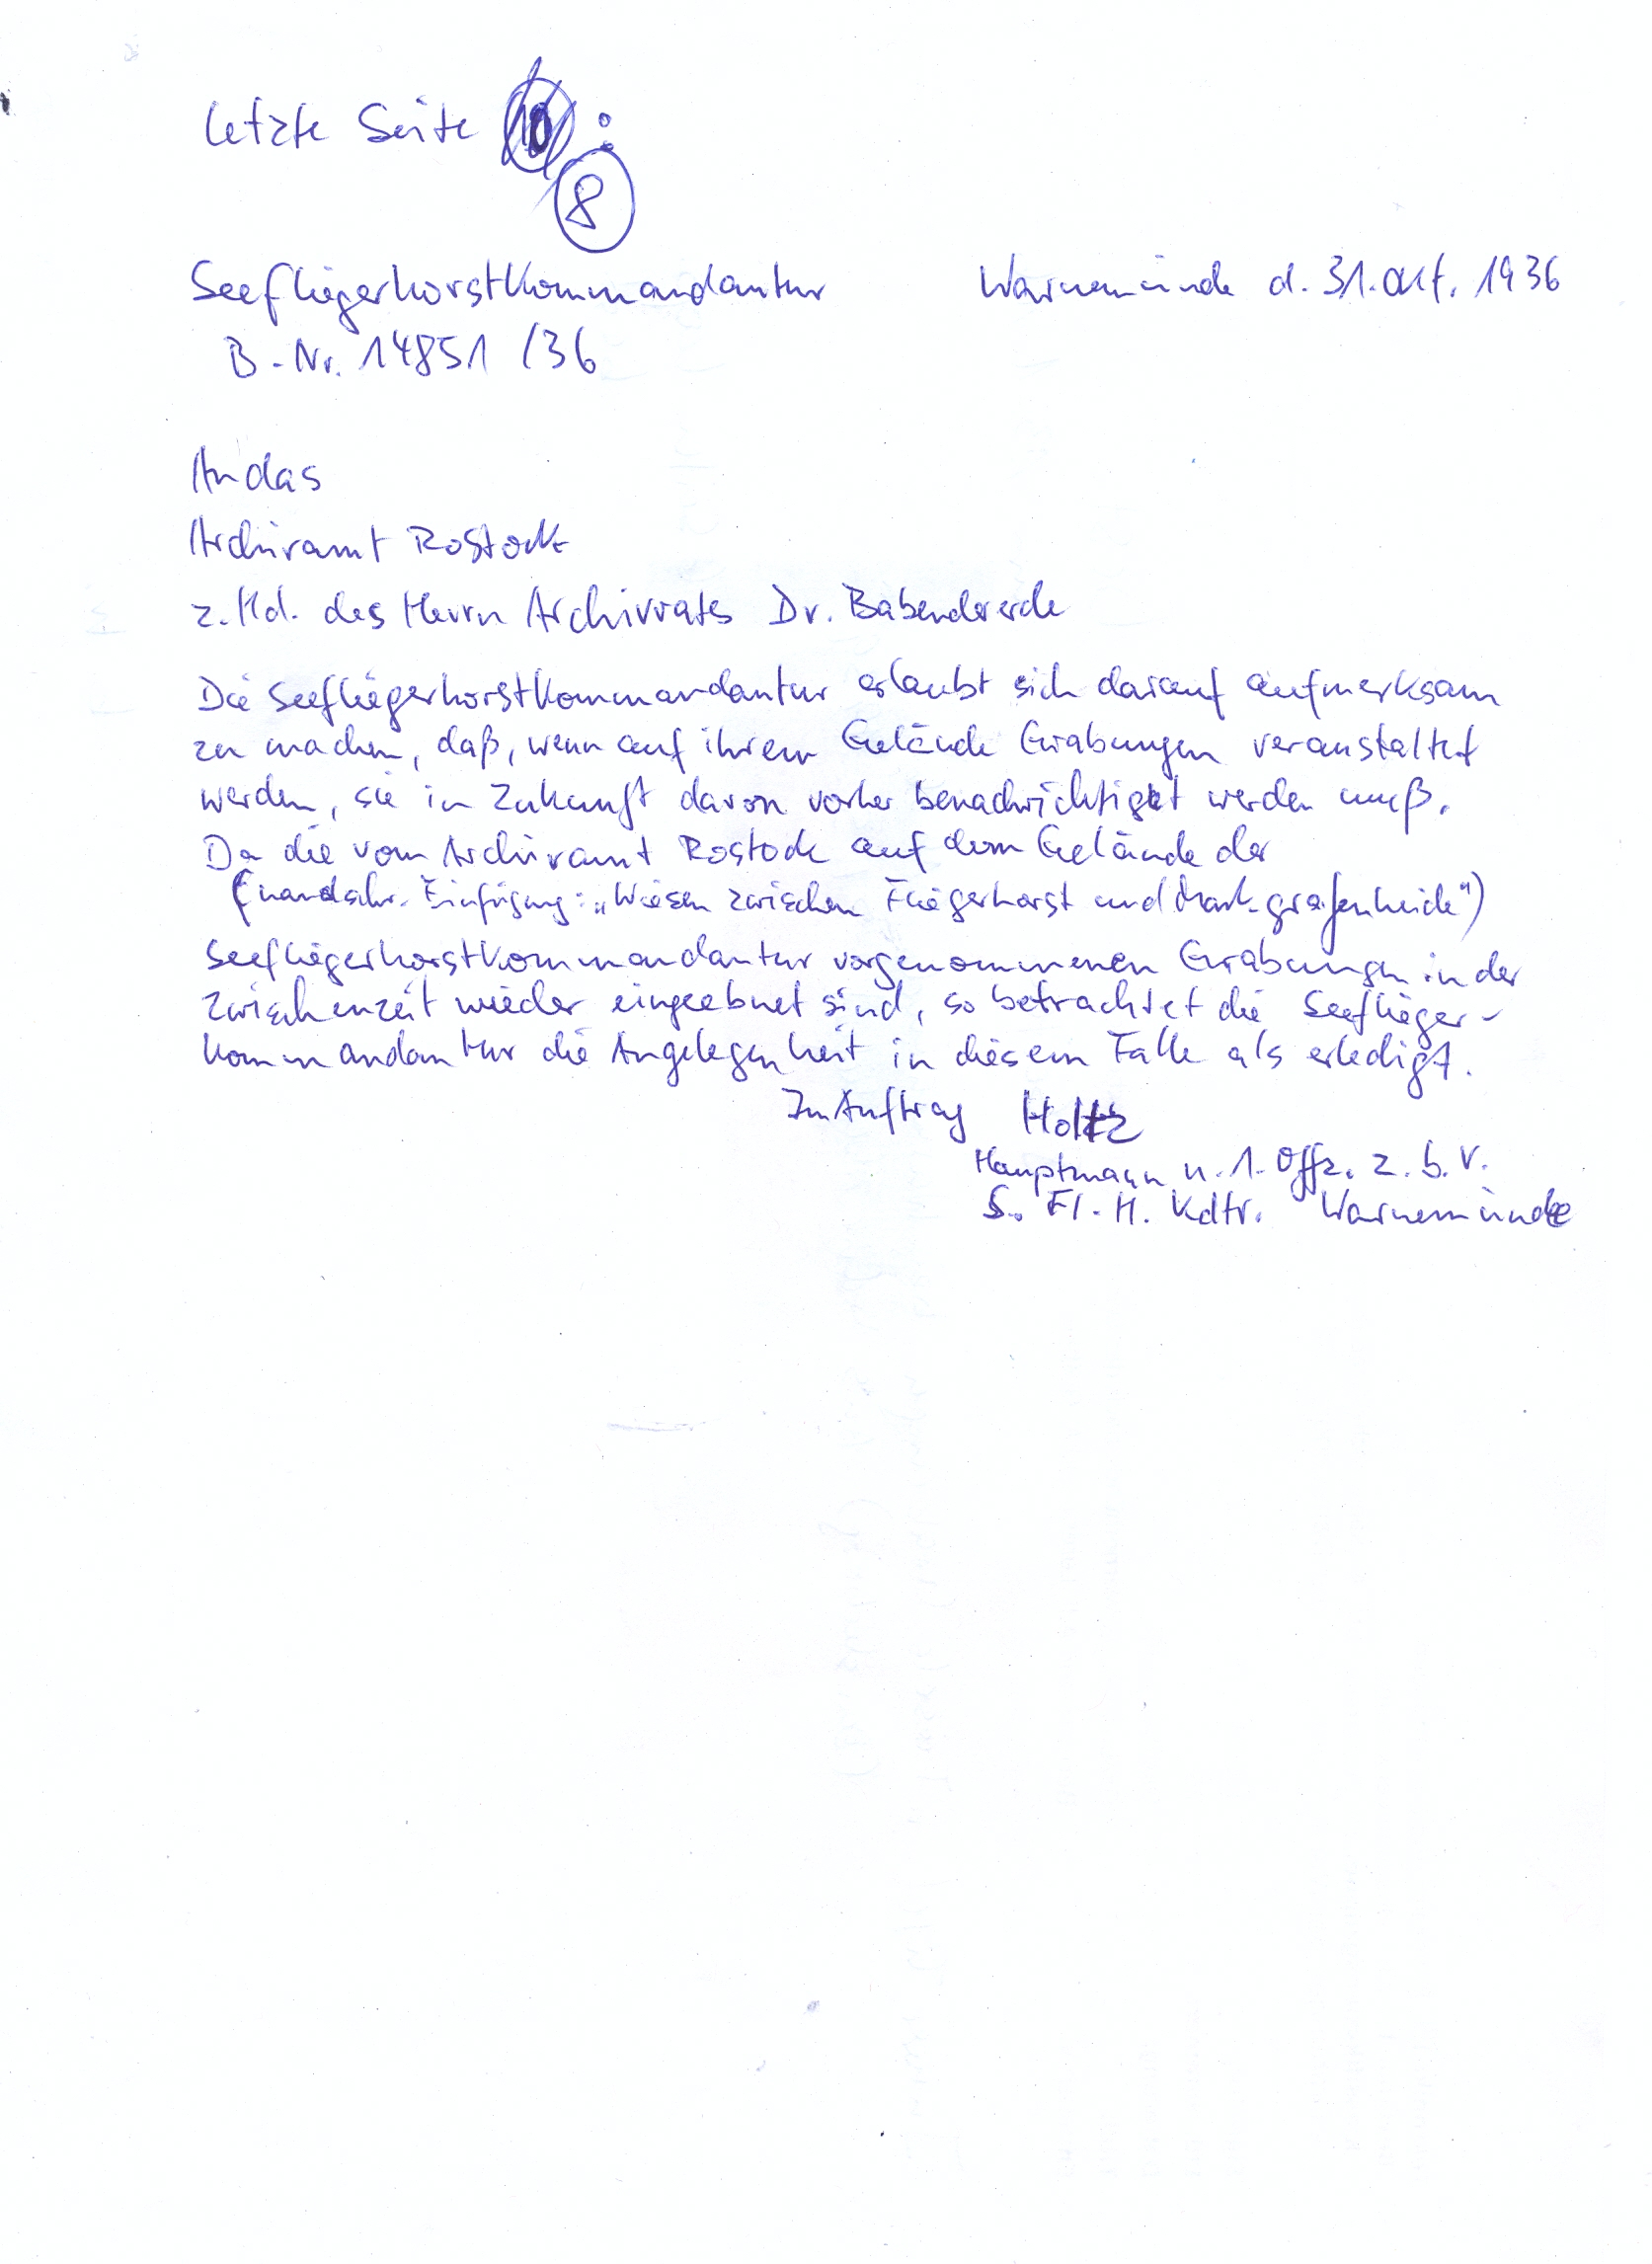 letzte Seite 10 :
8
Seefliegerhorstkommandantur Warnemünde d. 31. Okt. 1936
B.-Nr. 14851 /36
An das
Archivamt Rostock
z. Hd. des Herrn Archivrates Dr. Babendererde
Die Seefliegerhorstkommandantur erlaubt sich darauf aufmerksam
zu machen, daß, wenn auf ihrem Gelände Grabungen veranstaltet
werden, sie in Zukunft davon vorher benachrichtigt werden muß.
Da die vom Archivamt Rostock auf dem Gelände der
(handschr. Einfügung: „Wiesen zwischen Fliegerhorst und Markgrafenheide")
Seefliegerhorstkommandantur vorgenommenen Grabungen in der
Zwischenzeit wieder eingeebnet sind, so betrachtet die Seeflieger-
kommandantur die Angelegenheit in diesem Falle als erledigt.
Im Auftrag Holtz
Hauptmann u. 1. Offz. z. b. V.
S. Fl. H. Kdtr. Warnemünde